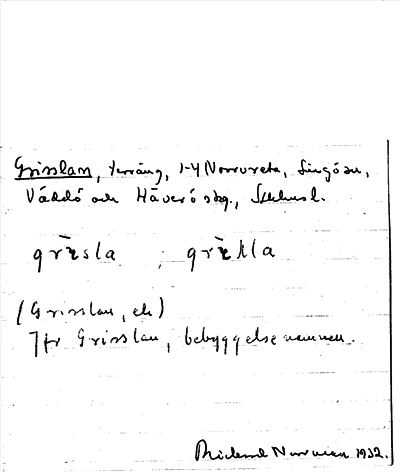 Grisslan, terräng, 1-4 Norrveta, Singö sn,
Väddö och Häverö skg., Sthlms l.
grìsla ; grìsla
(Grisslan, ek)
Jfr Grisslan, bebyggelsenamnen.
Rickard Norrman 1932.